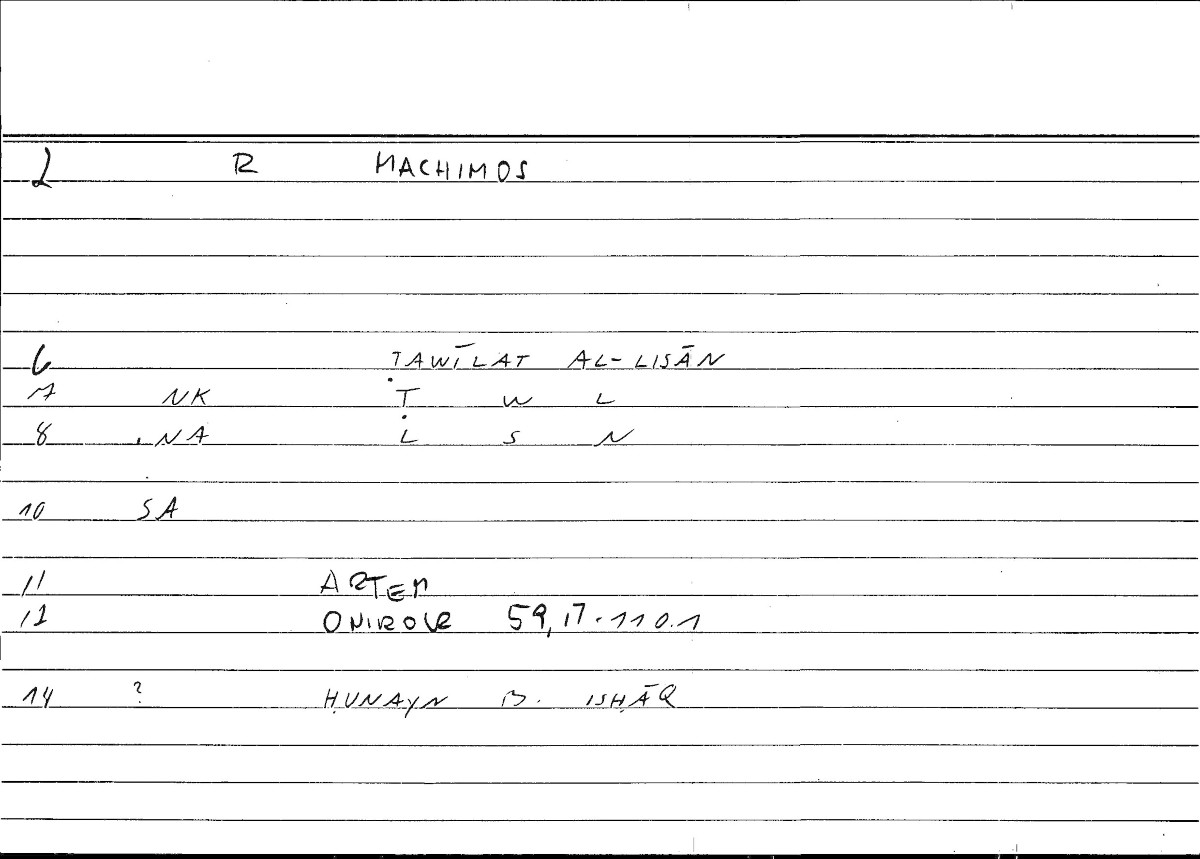 2 R MACHIMOS
6 ṬAWĪLAT AL-LISĀN
7 NK Ṭ W L
8 .NA L S N
10 SA
11 ARTEM
12 ONIROCR 59,17.110.1
14 ? ḤUNAYN B. ISḤĀQ